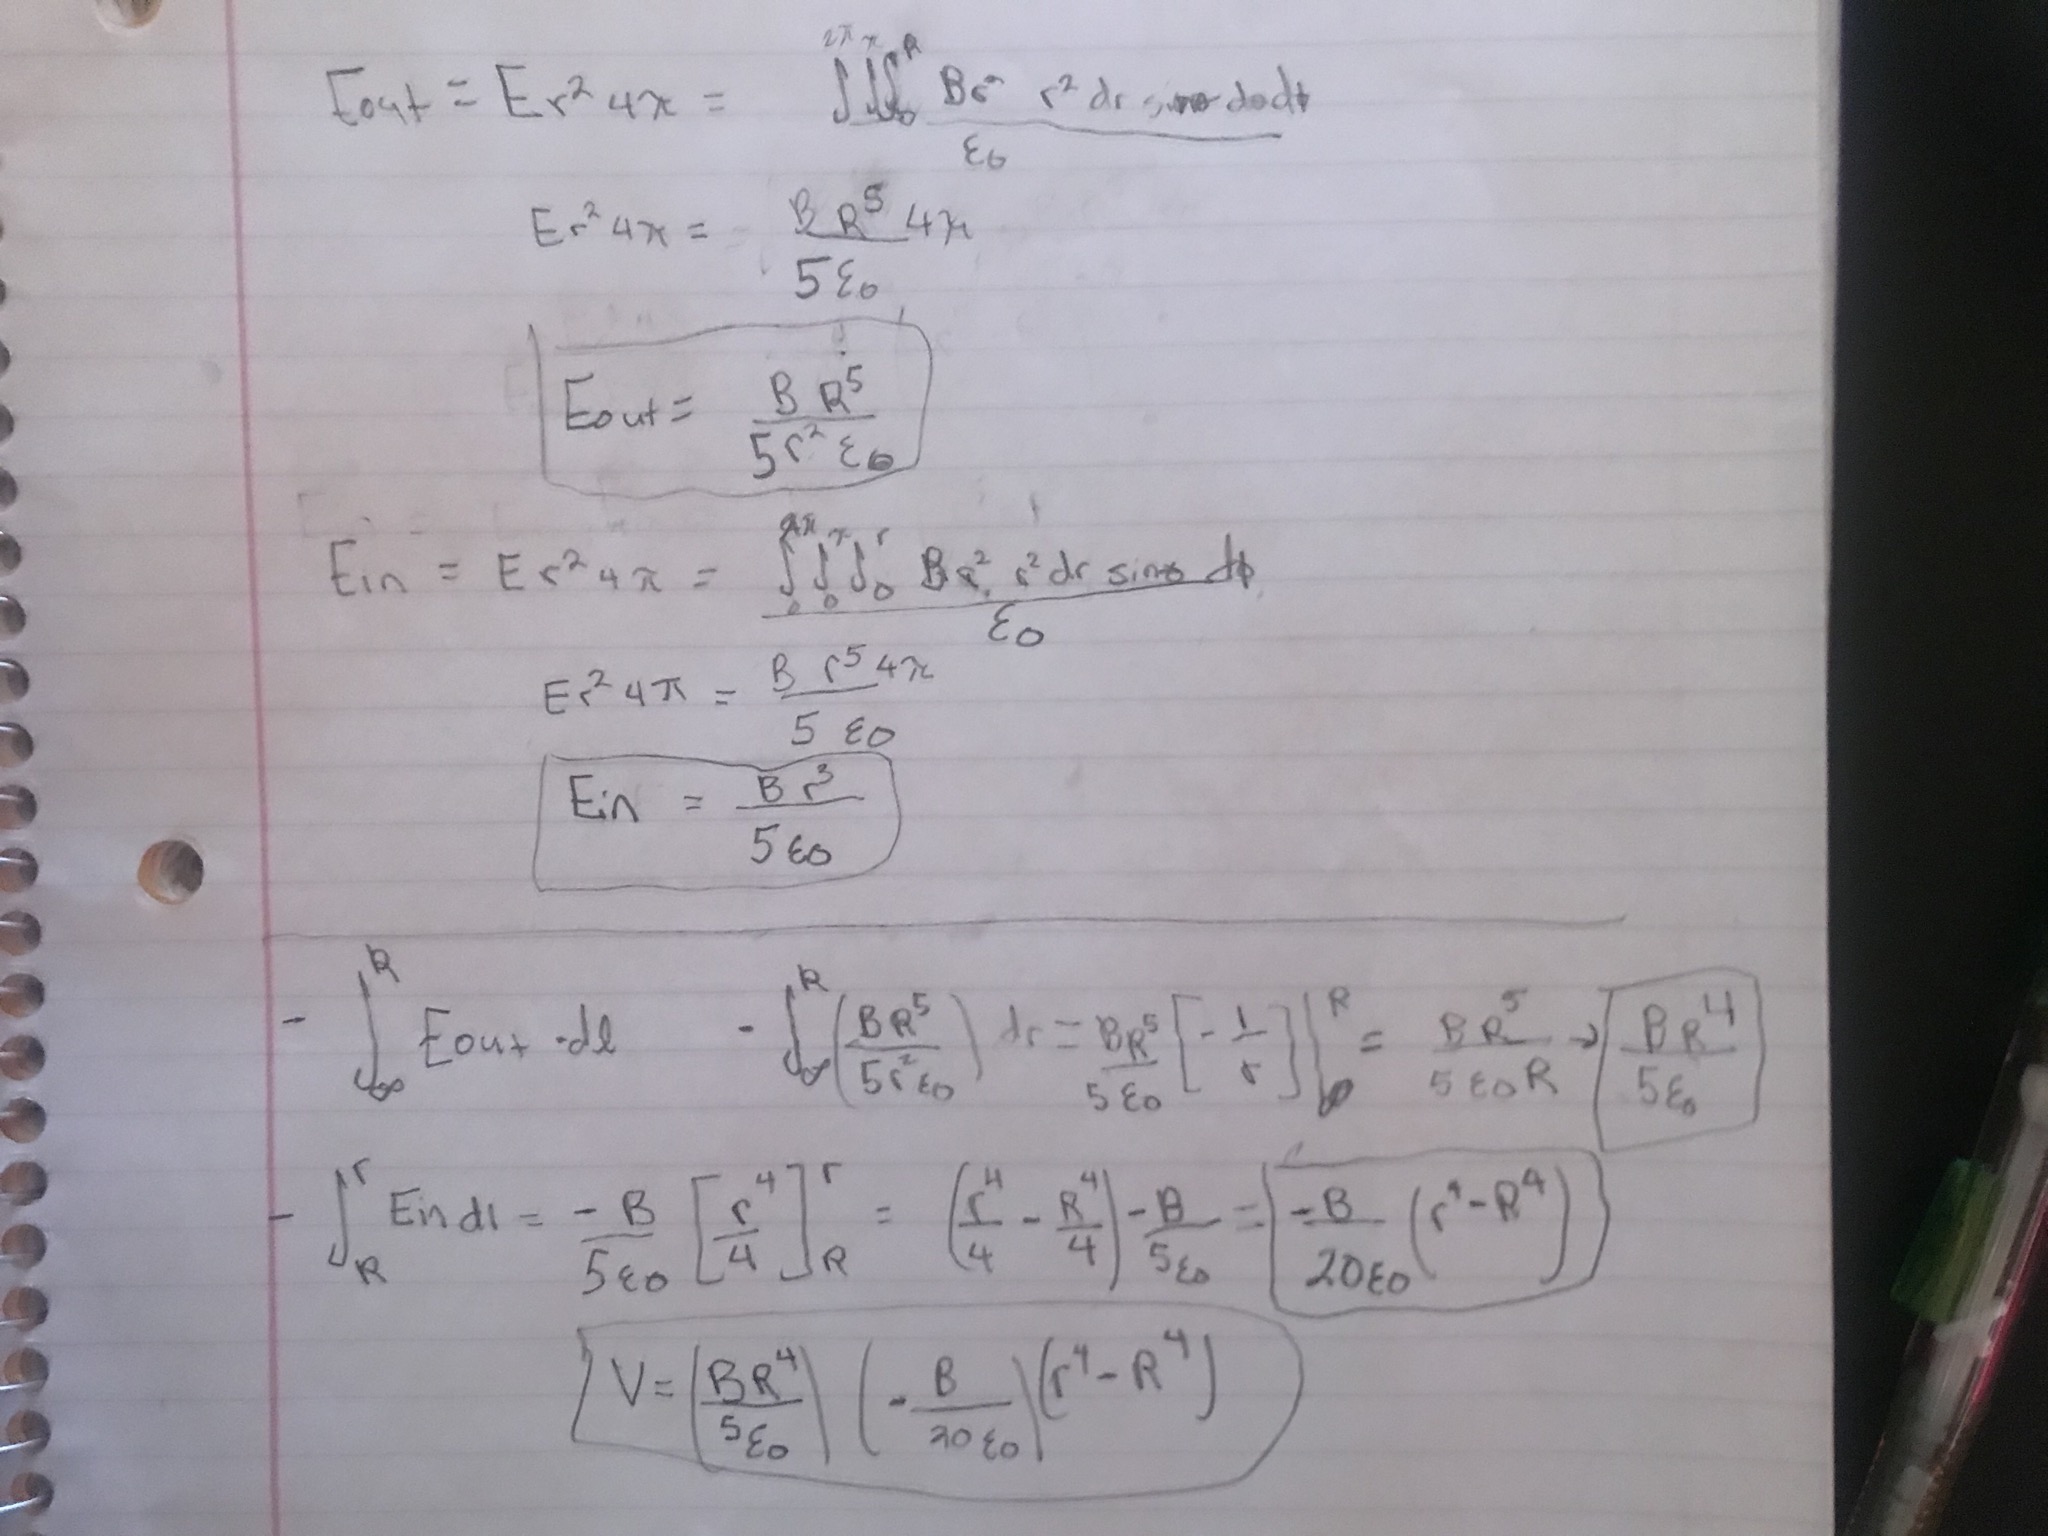 Eout = Er² 4π = ∫₀^2π ∫₀^π ∫₀^R Br² r² dr sinθ dθ dϕ / ε₀
Er² 4π = B R⁵ 4π / 5ε₀
Eout = B R⁵ / 5r² ε₀
Ein = Er² 4π = ∫₀^2π ∫₀^π ∫₀^r Br² r² dr sinθ dϕ / ε₀
Er² 4π = B r⁵ 4π / 5 ε₀
Ein = B r³ / 5ε₀
- ∫_∞^R Eout · dl - ∫_∞^R (BR⁵ / 5r²ε₀) dr = BR⁵ / 5ε₀ [- 1/r] |^R = BR⁵ / 5ε₀R → BR⁴ / 5ε₀
- ∫_R^r Ein dl = -B / 5ε₀ [r⁴/4]_R^r = (r⁴/4 - R⁴/4) -B / 5ε₀ = -B / 20ε₀ (r⁴-R⁴)
V = (BR⁴ / 5ε₀) (-B / 20ε₀) (r⁴-R⁴)